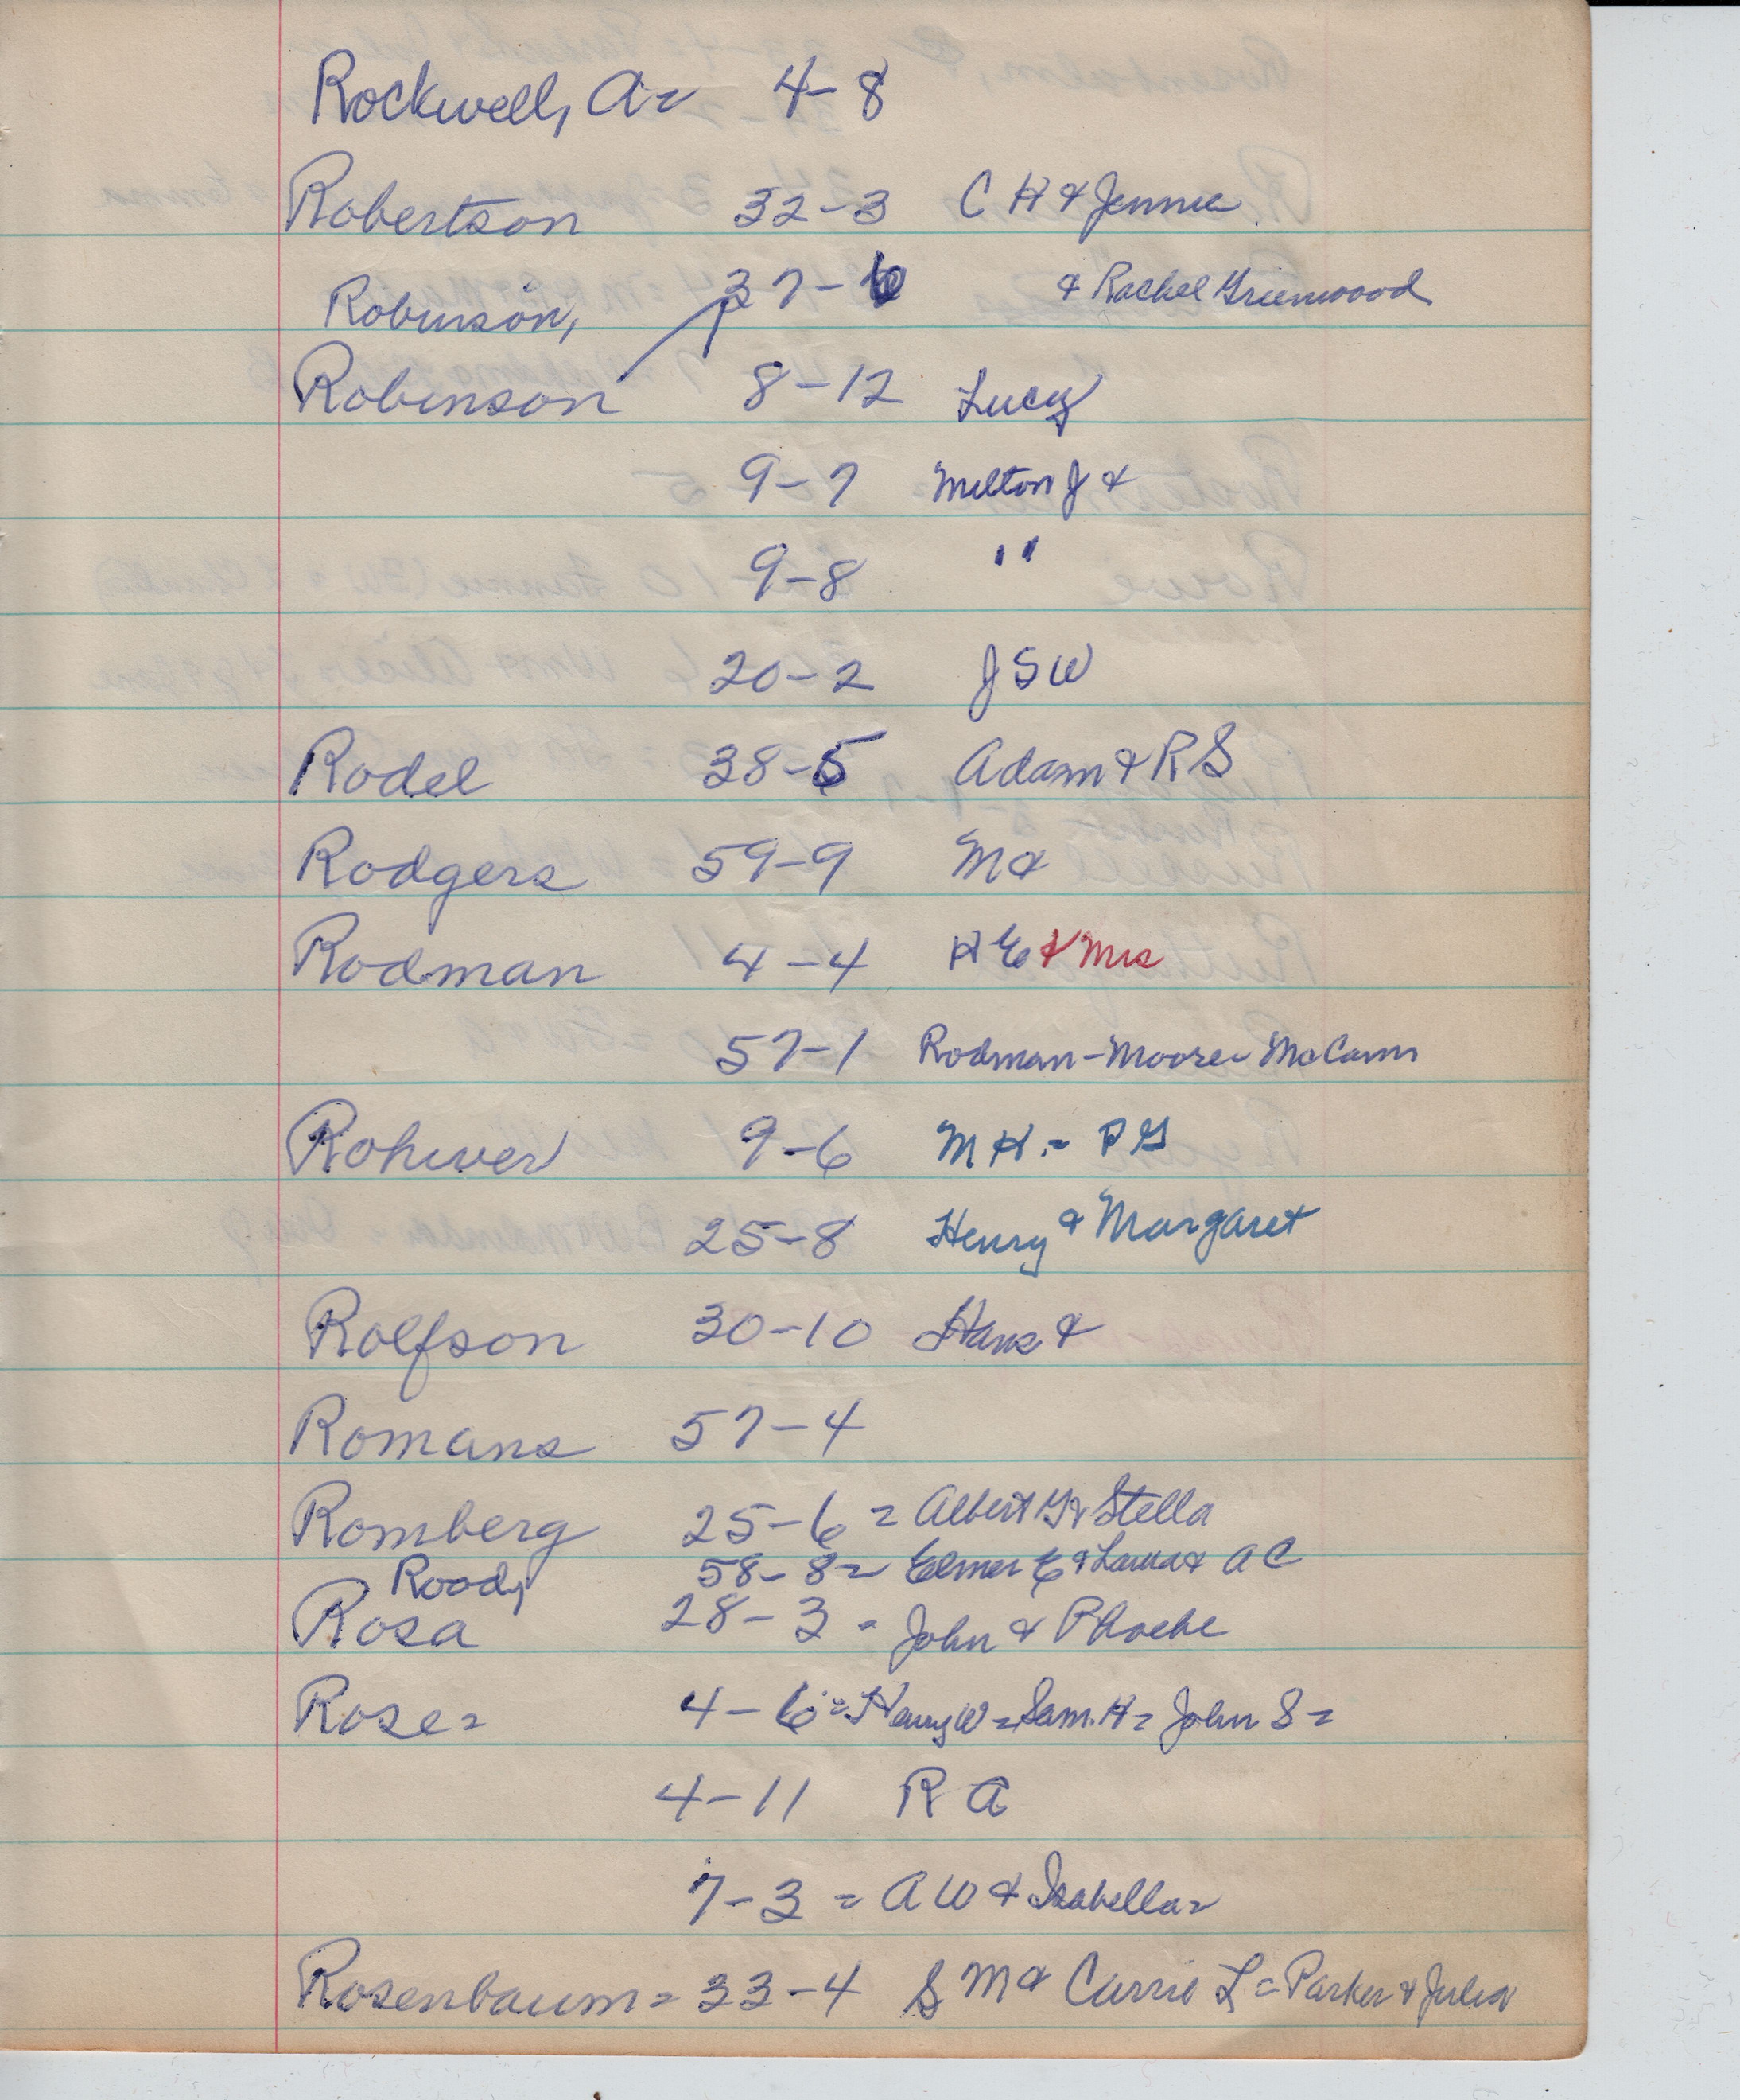 Rockwell, A= 4-8
Robertson 32-3 C H & Jennie
Robinson, 37-6 & Rachel Greenwoood
Robinson 8-12 Lucy
9-7 Milton J &
9-8 "
20-2 J S W
Rodel 38-5 Adam & R S
Rodgers 59-9 M &
Rodman 4-4 H E & Mrs
57-1 Rodman-Moore= McCann
Rohwer 9-6 M H.= P G
25-8 Henry & Margaret
Rolfson 30-10 Hans &
Romans 57-4
Romberg 25-6 = Albert G & Stella
Roody 58-8= Elmer E & Laura & A C
Rosa 28-3 = John & Phoebe
Rose= 4-6=Henry W=Sam. H= John S=
4-11 R A
7-3 = A W & Isabella=
Rosenbaum= 33-4 S M & Carrie L=Parker & Julia